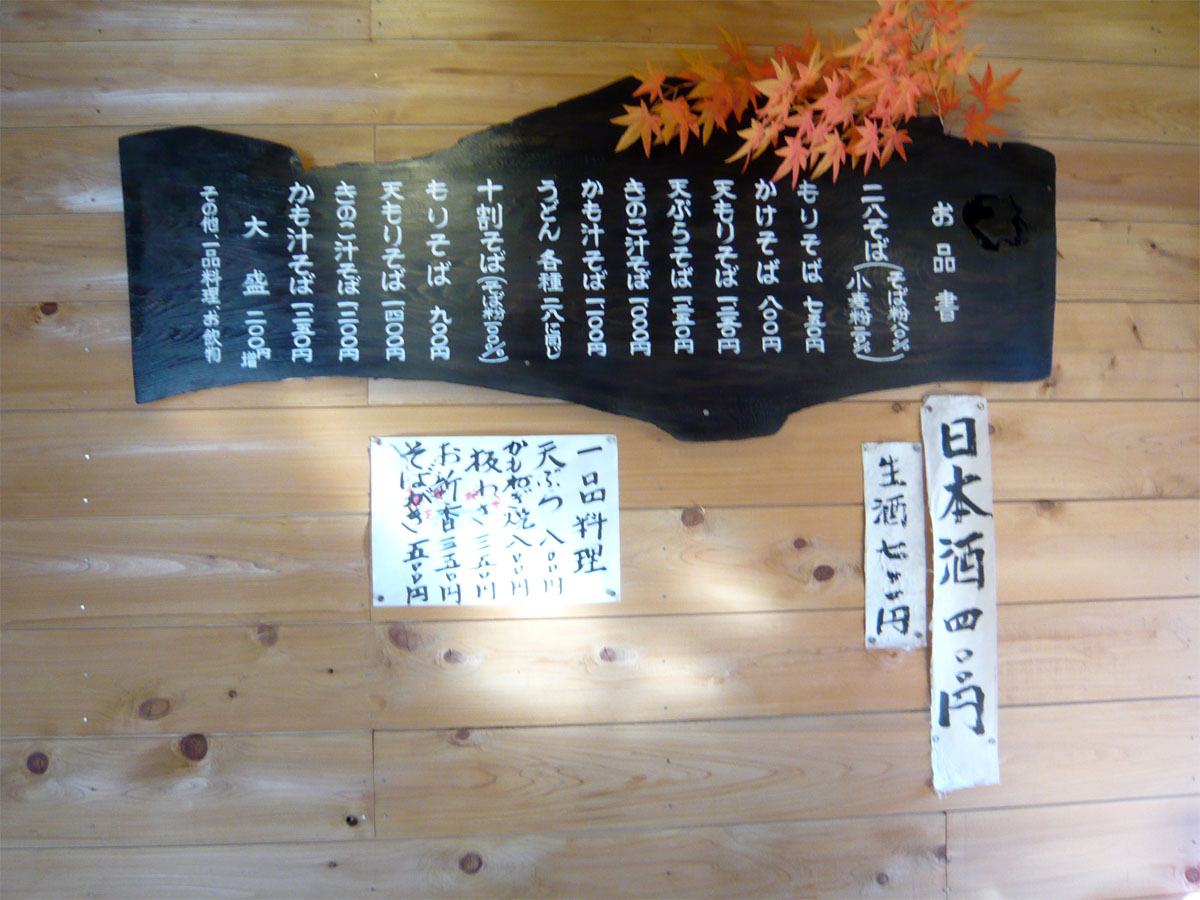 お品書
二八そば(そば粉八〇% 小麦粉二〇%)
もりそば 七五〇円
かけそば 八〇〇円
天もりそば 一二五〇円
天ぷらそば 一三五〇円
きのこ汁そば 一〇〇〇円
かも汁そば 一、一〇〇円
うどん 各種 二八に同じ
十割そば(そば粉一〇〇%)
もりそば 九〇〇円
天もりそば 一四〇〇円
きのこ汁そば 一二〇〇円
かも汁そば 一二五〇円
大盛 二〇〇円増
その他、一品料理、お飲物
一品料理
天ぷら 八〇〇円
かもねぎ焼 八〇〇円
板わさ 三五〇円
お新香 三五〇円
そばがき 一五〇〇円
日本酒 四〇〇円
生酒 七〇〇円